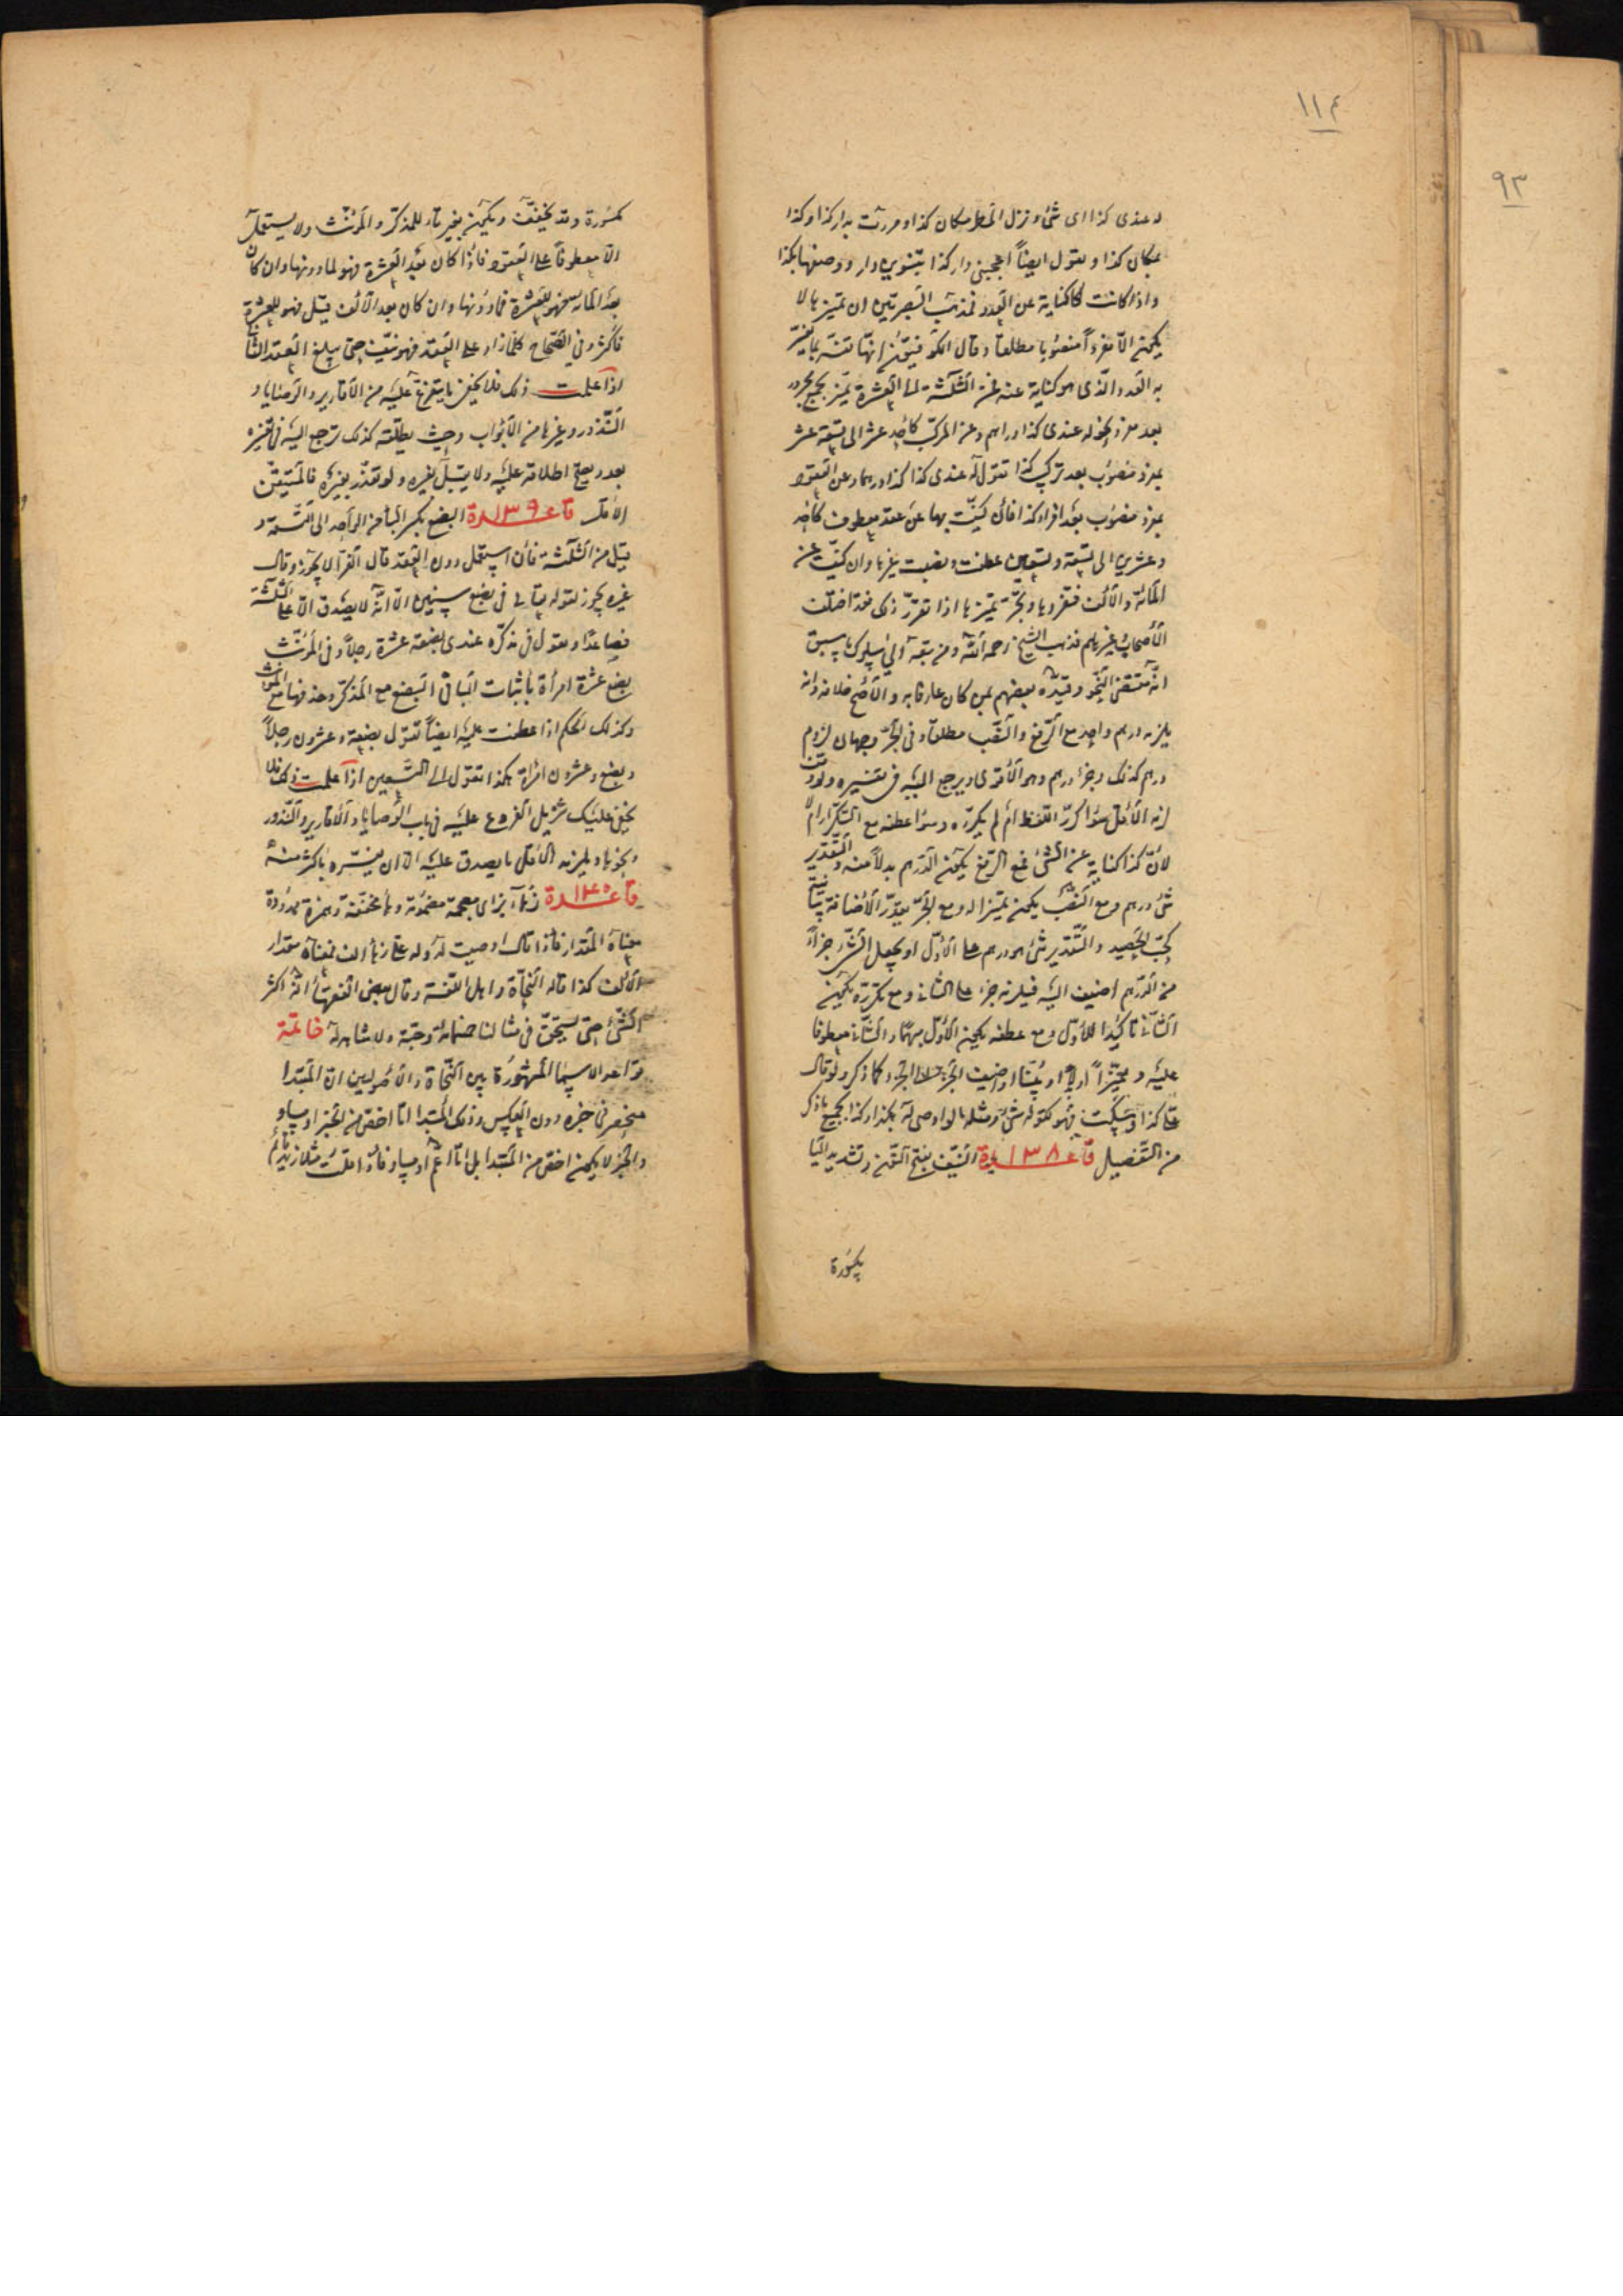 ١١٤
٩٣
له عندى كذا اى شئ و نزل المطر مكان كذا و مررت بدار كذا و كذا
بمكان كذا و يقول ايضاً اعجبنى دار كذا بتنوين دار و وصفها بكذا
و اذا كانت كناية عن العدد فمذهب البصريين ان تميزها لا
يكون الّا مفرداً منصوبا مطلقا و قال الكوفيون انها تفسّر بما يفسّر
به العدد الّذى هو كناية عنه فمن الثلثة الى العشرة تميز بجمع مجرور
بعد مفرد نحو له عندى كذا دراهم و عن المركب كاحد عشر الى تسعة عشر
بمفرد منصوب بعد تركيب كذا تقول له عندى كذا كذا درهما و عن العقود
بمفرد منصوب بعد افراد كذا فان كنيت بها عن عقد معطوف كاحد
و عشرين الى تسعة و تسعين عطفت و نصبت تميزها و ان كنيت عن
المائة و الالف فتفردها و تجرّ تميزها اذا تقرّر ذلك فقد اختلف
الأصحاب و غيرهم فذهب الشيخ رحمه الله و من تبعه الى سلوك ما سبق
انه مقتضى النحو و قيّده بعضهم بمن كان عارفا به و الأصح خلافه و انه
يلزمه درهم واحد مع الرّفع و النّصب مطلقا و فى الجرّ وجهان لزوم
درهم كذلك و جزء درهم و هو الأقوى و يرجع اليه فى تفسيره و لو وقف
لزمه الأقل سواء كرّر اللفظ ام لم يكرّره و سواء عطفه مع التكرار ام لا
لانّ كذا كناية عن الشئ فمع الرّفع يكون الدّرهم بدلا منه و التقدير
شئ درهم و مع النصب يكون تميزا له و مع الجرّ يقدّر الأضافة بيانية
كحبّ الحصيد و التّقدير شئ هو درهم على الأوّل او يجعل الشئ جزءاً
من الدّرهم اضيف اليه فيلزمه جزء على الثانى و مع تكرره يكون
الثّانى تاكيدا للأوّل و مع عطفه يكون الأوّل مبهما و الثّانى معطوفا
عليه و مميّزاً او اضيف الجزء الى الجزء كما ذكر و لو قال
علىّ كذا و سكت فهو كقوله شئ و مثله ما لو اوصى له بكذا و كذا بجميع ما ذكر
من التّفصيل قاعدة ١٣٨ النيّف بفتح النّون و تشديد اليا
مكسورة
مكسورة و قد يخفف و يكون بغير تاء للمذكّر و المؤنّث و لا يستعمل
الّا معطوفا على العقود فاذا كان بعد العشرة فهو لما دونها و ان كان
بعد المائة فهو للعشرة فما دونها و ان كان بعد الألف قيل فهو للعشرة
فاكثر و فى الصّحاح كلّما زاد على العقد فهو نيّف حتى يبلغ العقد الثانى
اذا علمت ذلك فلا يخفى ما يتفرّع عليه من الأقارير و الوصايا و
النّذور و غيرها من الأبواب و حيث يطلقه كذلك يرجع اليه فى تفسيره
بعدد يصح اطلاقه عليه و لا يقبل بغيره و لو تعذّر تفسيره فالمتيقن
الأقل قاعدة ١٣٩ البضع بكسر البا من الواحد الى التسعة و
قيل من الثلثة فان استعمل دون العقد قال الفرا لا يجوز و قال
غيره يجوز لقوله تعالى فى بضع سنين الّا انه لا يصدق الّا على الثلثة
فصاعدًا و يقول فى مذكّره عندى بضعة عشرة رجلاً و فى المؤنّث
بضع عشرة امرأة باثبات التّا فى البضع مع المذكّر و حذفها مع المؤنث
و كذلك الحكم اذا عطفت عليه ايضاً تقول بضعة و عشرون رجلاً
و بضع و عشرون امرأة هكذا تقول الى التّسعين اذا علمت ذلك فلا
يخفى عليك تنزيل الفروع عليه فى باب الوصايا و الأقارير و النّذور
و نحوها و يلزمه الأقل ما يصدق عليه الّا ان يفسّره باكثر منه
قاعدة ١٤٠ زها بزاى معجمة مضمومة و ها مخففة و همزة ممدودة
معناه المقدار فاذا قال اوصيت له او له علىّ زها الف فمعناه مقدار
الألف كذا قاله النّحاة و اهل اللّغة و قال بعض الفقهاء انه اكثر
الشئ حتى يستحق فى مثالنا خمسمائة و حبّة و لا شاهد له خاتمة
قواعد لا سيما المشهورة بين النّحاة و الأصوليين انّ المبتدا
منحصر فى خبره دون العكس و ذلك المبتدا امّا اخصّ من الخبر او مساو
و الخبر لا يكون اخصّ من المبتدا بل امّا اعمّ او مساو فاذا قلت مثلا زيد قائم